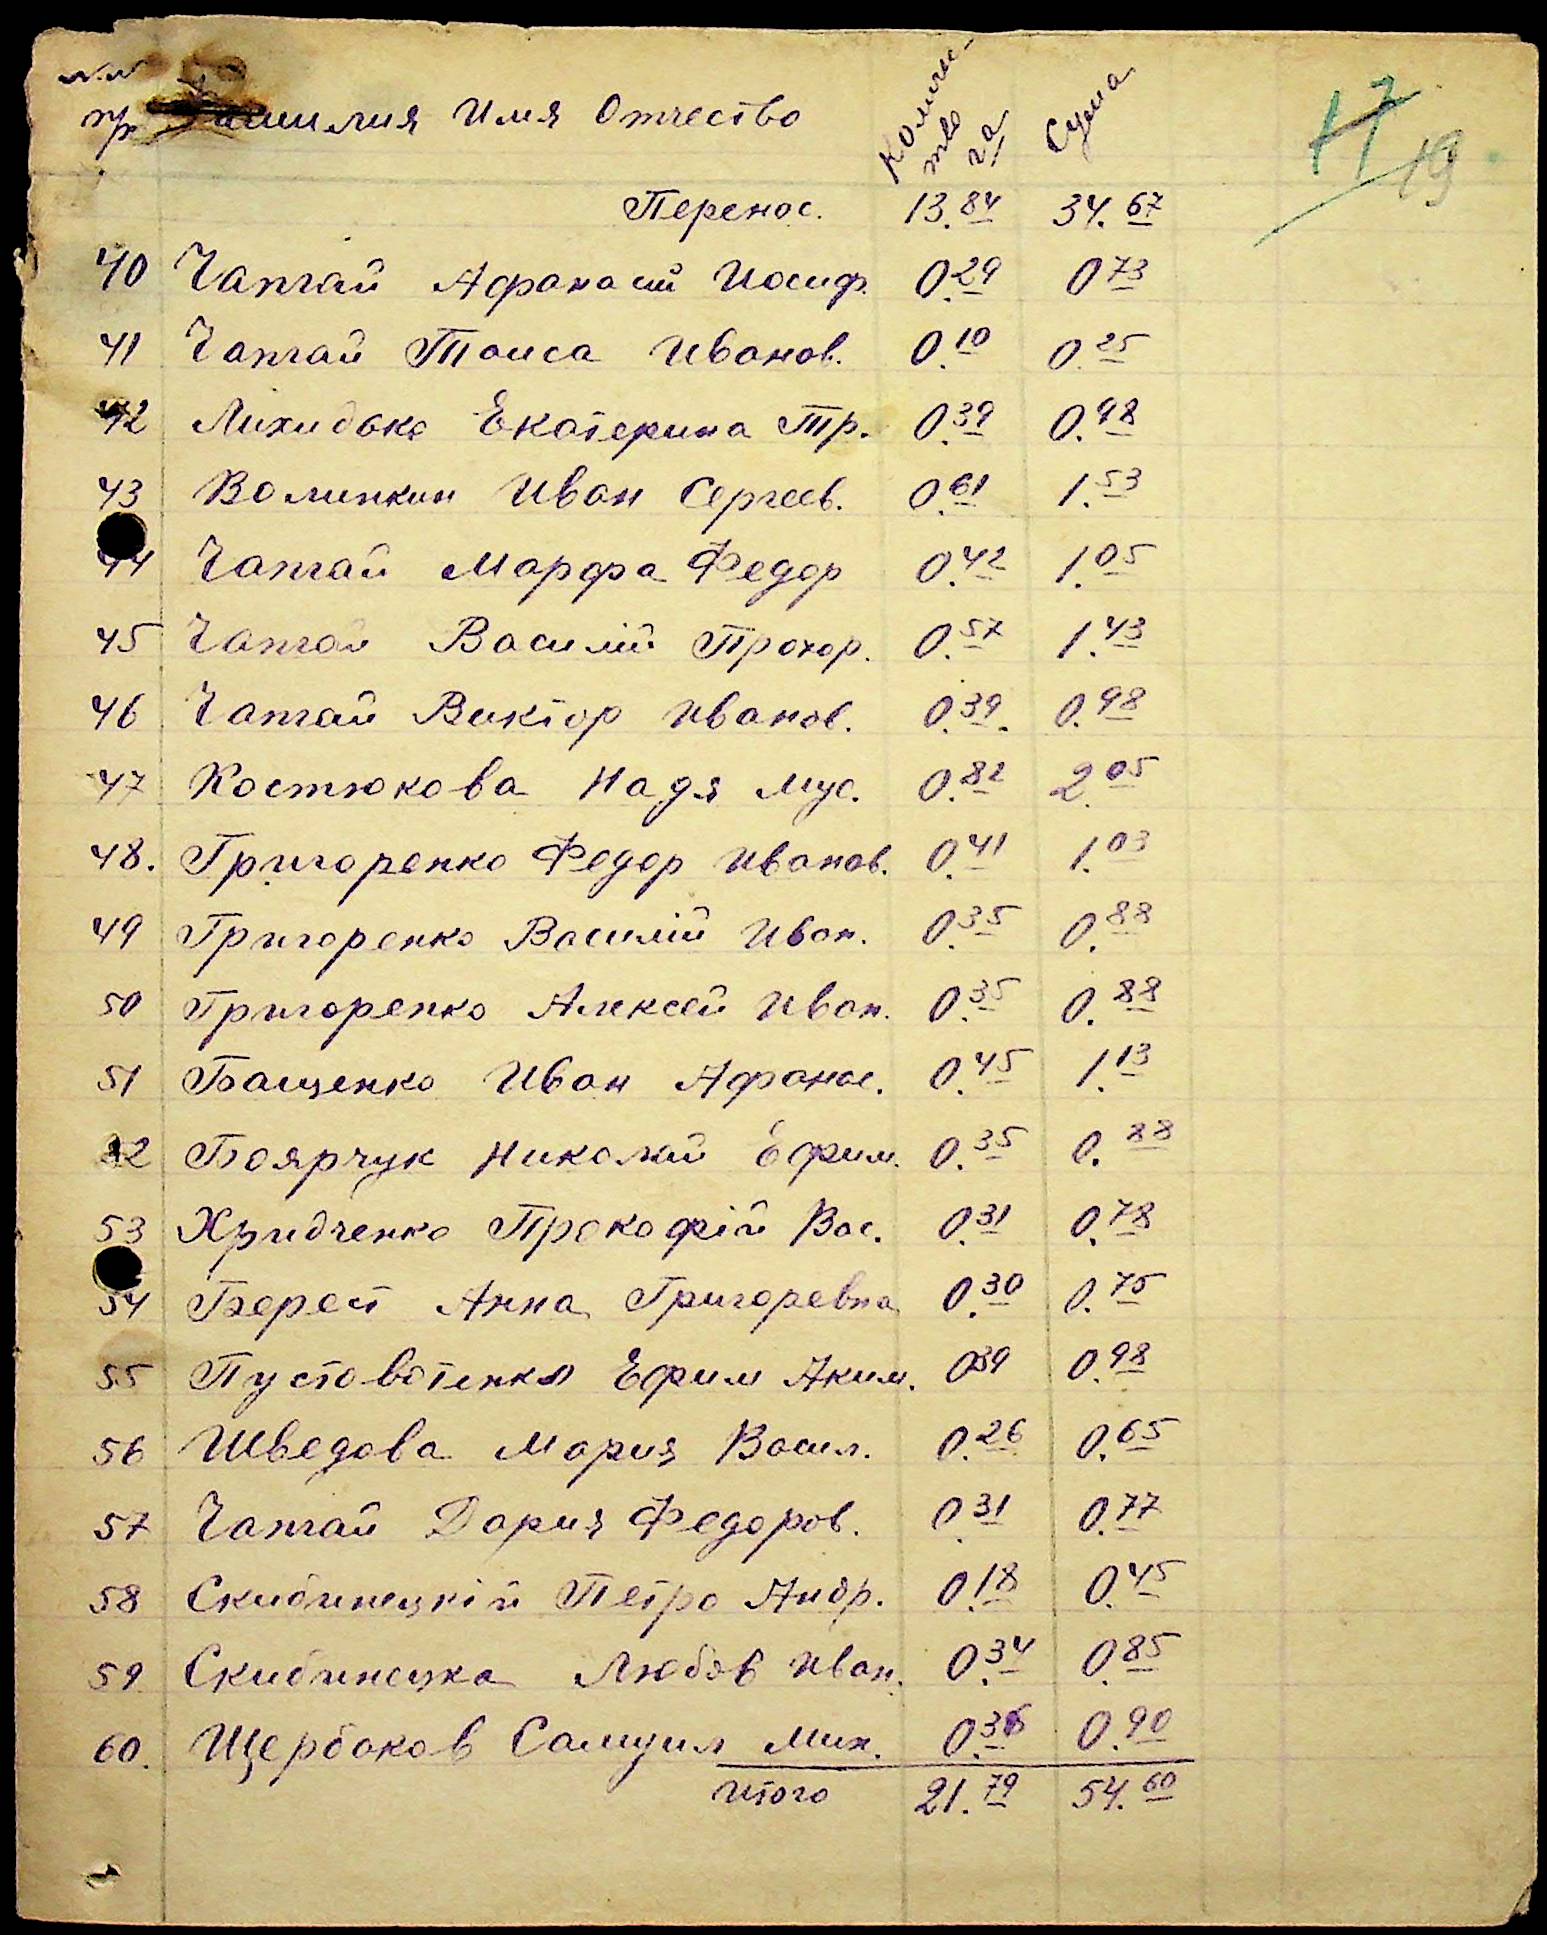 №№ п/р Фамилия Имя Отчество Количество га Сумма
17 19
Перенос. 13.84 34.67
40 Чапгай Афанасий Иосиф. 0.29 0 73
41 Чапгай Таиса Иванов. 0.10 0.25
42 Лихидько Екатерина Тр. 0.39 0.98
43 Волинкин Иван Сергеев. 0.61 1.53
44 Чапгай Марфа Федор 0.42 1.05
45 Чапгай Василий Прохор. 0.57 1.43
46 Чапгай Виктор Иванов. 0.39. 0.98
47 Костюкова Надя Мус. 0.82 2.05
48. Григоренко Федор Иванов. 0.41 1.03
49 Григоренко Василій Иван. 0.35 0.88
50 Григоренко Алексей Иван. 0.35 0.88
51 Бащенко Иван Афанас. 0.45 1.13
52 Боярчук Николай Ефим. 0.35 0.88
53 Хридченко Прокофій Вас. 0.31 0.78
54 Берест Анна Григоревна 0.30 0.75
55 Пустовотенко Ефим Аким. 0 39 0.98
56 Шведова Мария Васил. 0.26 0.65
57 Чапгай Дария Федоров. 0.31 0.77
58 Скибинецкій Петро Андр. 0.18 0.45
59 Скибинецка Любов Иван. 0.34 0.85
60. Щербаков Самуил Мин. 0.36 0.90
Итого 21.79 54.60